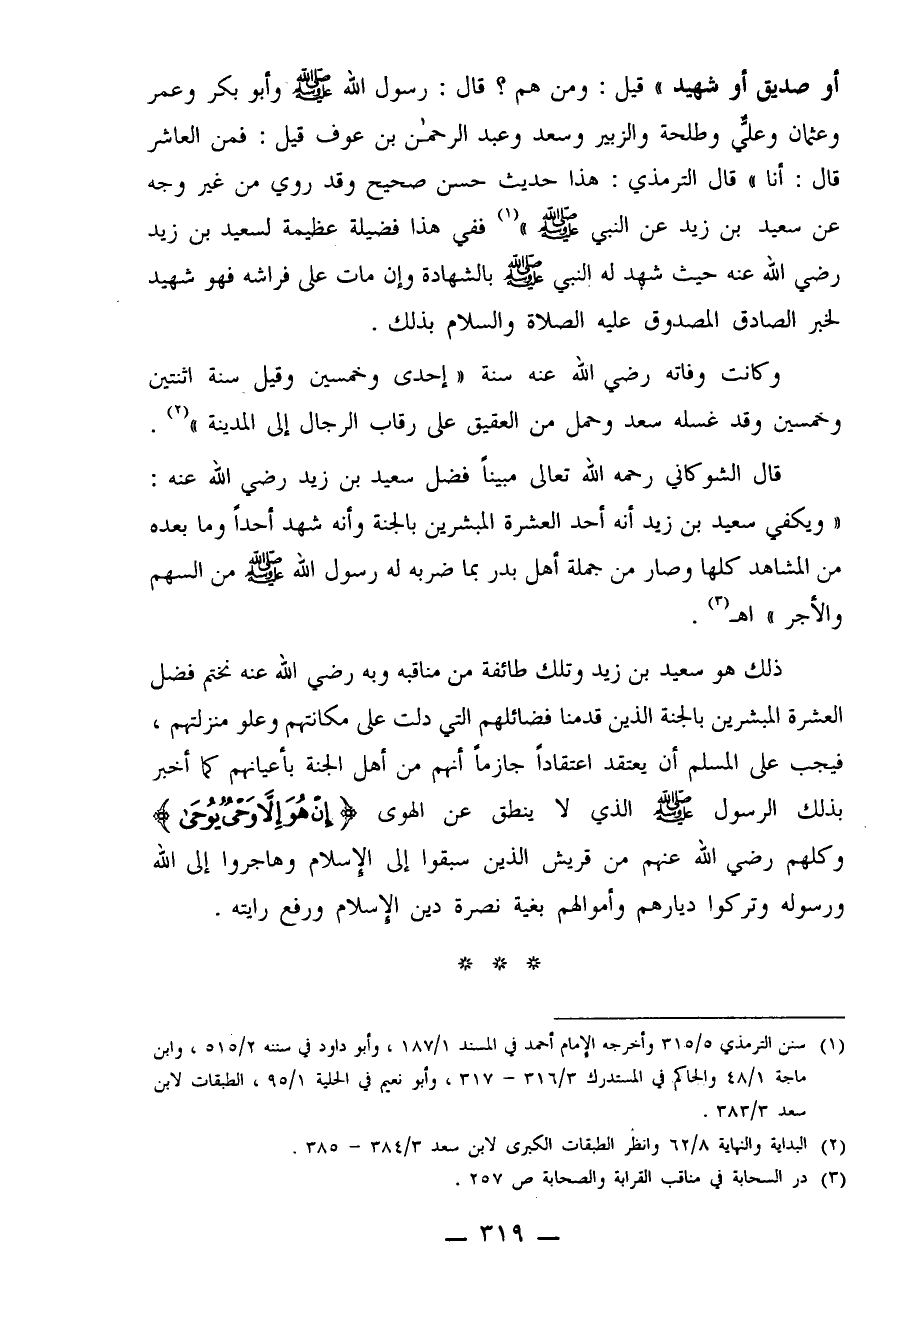 أو صديق أو شهيد » قيل : ومن هم ؟ قال : رسول الله ﷺ وأبو بكر وعمر
وعثمان وعليٌّ وطلحة والزبير وسعد وعبد الرحمٰن بن عوف قيل : فمن العاشر
قال : أنا » قال الترمذي : هذا حديث حسن صحيح وقد روي من غير وجه
عن سعيد بن زيد عن النبي ﷺ »(١) ففي هذا فضيلة عظيمة لسعيد بن زيد
رضي الله عنه حيث شهد له النبي ﷺ بالشهادة وإن مات على فراشه فهو شهيد
لخبر الصادق المصدوق عليه الصلاة والسلام بذلك .
وكانت وفاته رضي الله عنه سنة « إحدى وخمسين وقيل سنة اثنتين
وخمسين وقد غسله سعد وحمل من العقيق على رقاب الرجال إلى المدينة »(٢) .
قال الشوكاني رحمه الله تعالى مبيناً فضل سعيد بن زيد رضي الله عنه :
« ويكفي سعيد بن زيد أنه أحد العشرة المبشرين بالجنة وأنه شهد أحداً وما بعده
من المشاهد كلها وصار من جملة أهل بدر بما ضربه له رسول الله ﷺ من السهم
والأجر » اهـ(٣) .
ذلك هو سعيد بن زيد وتلك طائفة من مناقبه وبه رضي الله عنه نختم فضل
العشرة المبشرين بالجنة الذين قدمنا فضائلهم التي دلت على مكانتهم وعلو منزلتهم ،
فيجب على المسلم أن يعتقد اعتقاداً جازماً أنهم من أهل الجنة بأعيانهم كما أخبر
بذلك الرسول ﷺ الذي لا ينطق عن الهوى ﴿ إِنْ هُوَ إِلَّا وَحْيٌ يُوحَىٰ ﴾
وكلهم رضي الله عنهم من قريش الذين سبقوا إلى الإسلام وهاجروا إلى الله
ورسوله وتركوا ديارهم وأموالهم بغية نصرة دين الإسلام ورفع رايته .
* * *
(١) سنن الترمذي ٣١٥/٥ وأخرجه الإمام أحمد في المسند ١٨٧/١ ، وأبو داود في سننه ٥١٥/٢ ، وابن
ماجة ٤٨/١ والحاكم في المستدرك ٣١٦/٣ – ٣١٧ ، وأبو نعيم في الحلية ٩٥/١ ، الطبقات لابن
سعد ٣٨٣/٣ .
(٢) البداية والنهاية ٦٢/٨ وانظر الطبقات الكبرى لابن سعد ٣٨٤/٣ – ٣٨٥ .
(٣) در السحابة في مناقب القرابة والصحابة ص ٢٥٧ .
— ٣١٩ —